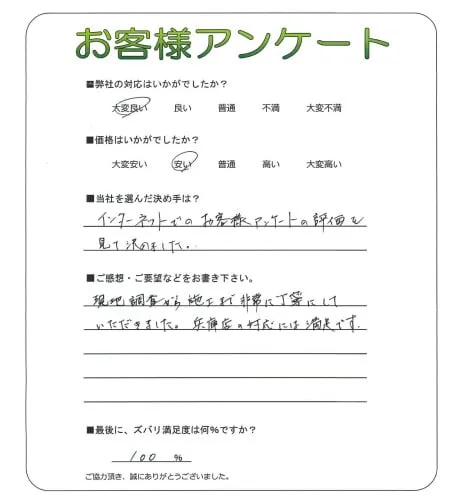 お客様アンケート
■弊社の対応はいかがでしたか?
大変良い 良い 普通 不満 大変不満
■価格はいかがでしたか?
大変安い 安い 普通 高い 大変高い
■当社を選んだ決め手は?
インターネットでのお客様アンケートの評価を
見て決めました。
■ご感想・ご要望などをお書き下さい。
現地調査から施工まで非常に丁寧にして
いただきました。兵庫店の対応には満足です.
■最後に、ズバリ満足度は何%ですか?
100 %
ご協力頂き、誠にありがとうございました。